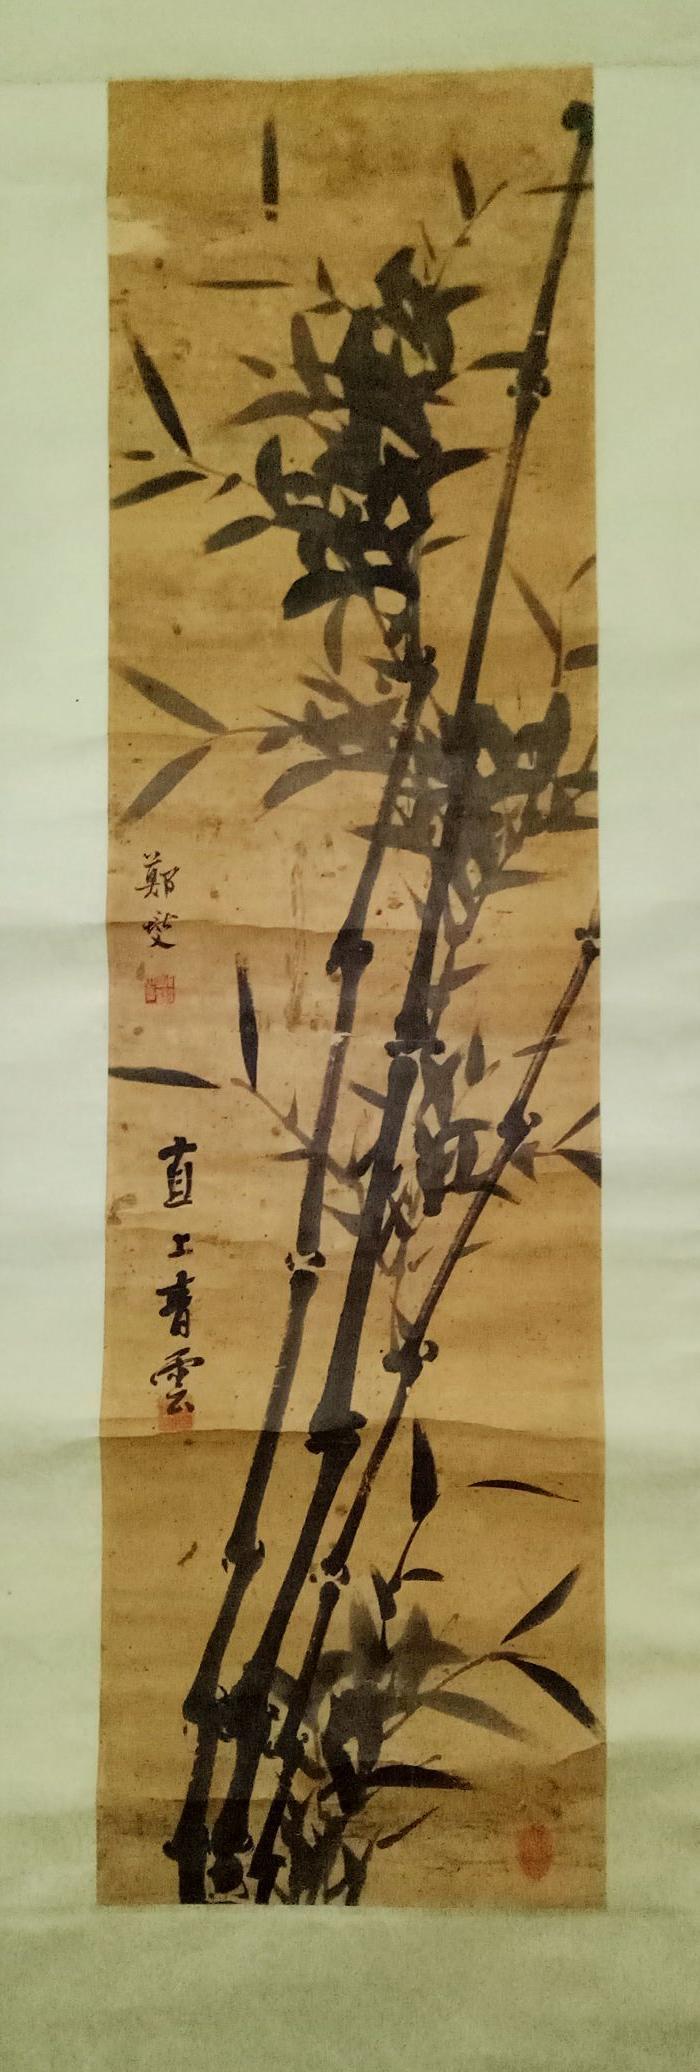 鄭燮
直上青雲